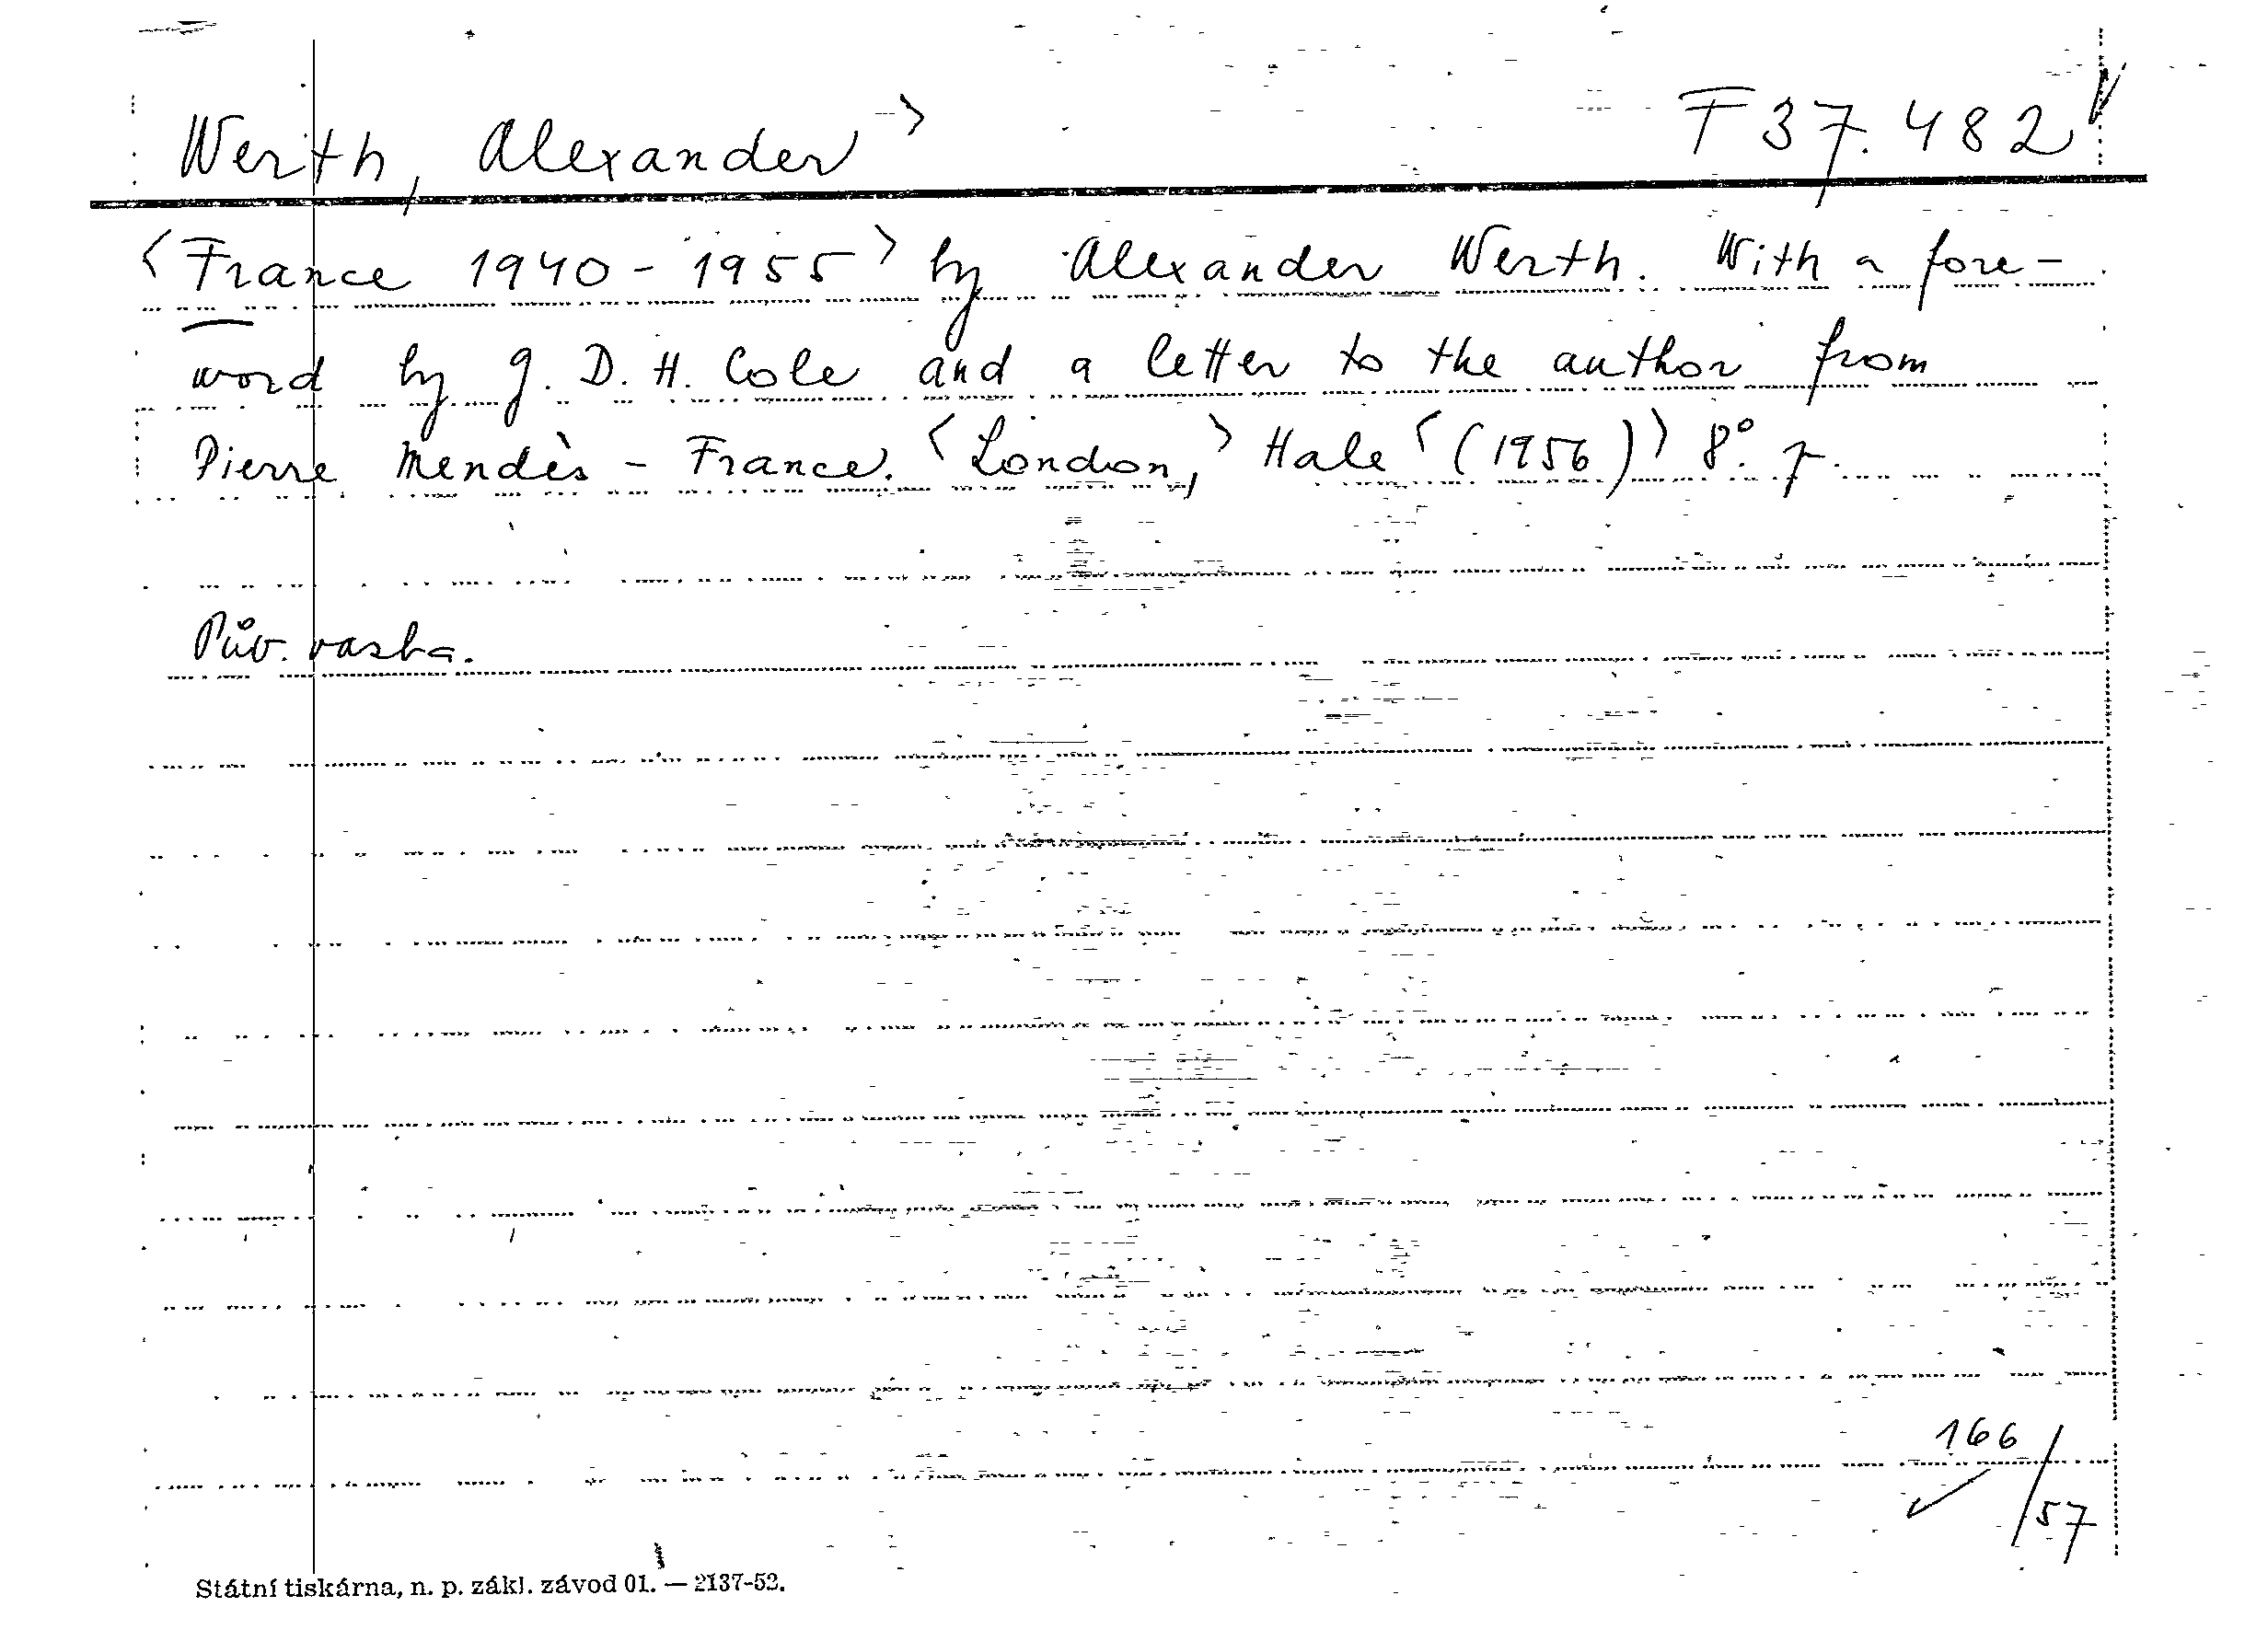 Werth, Alexander > T 37.482
<France 1940-1955> by Alexander Werth. With a fore-
word by G. D. H. Cole and a letter to the author from
Pierre Mendès-France. <London,> Hale <(1956)> 8°. p.
Pův. vazba.
166/57
Státní tiskárna, n. p. zákl. závod 01. — 2137-52.